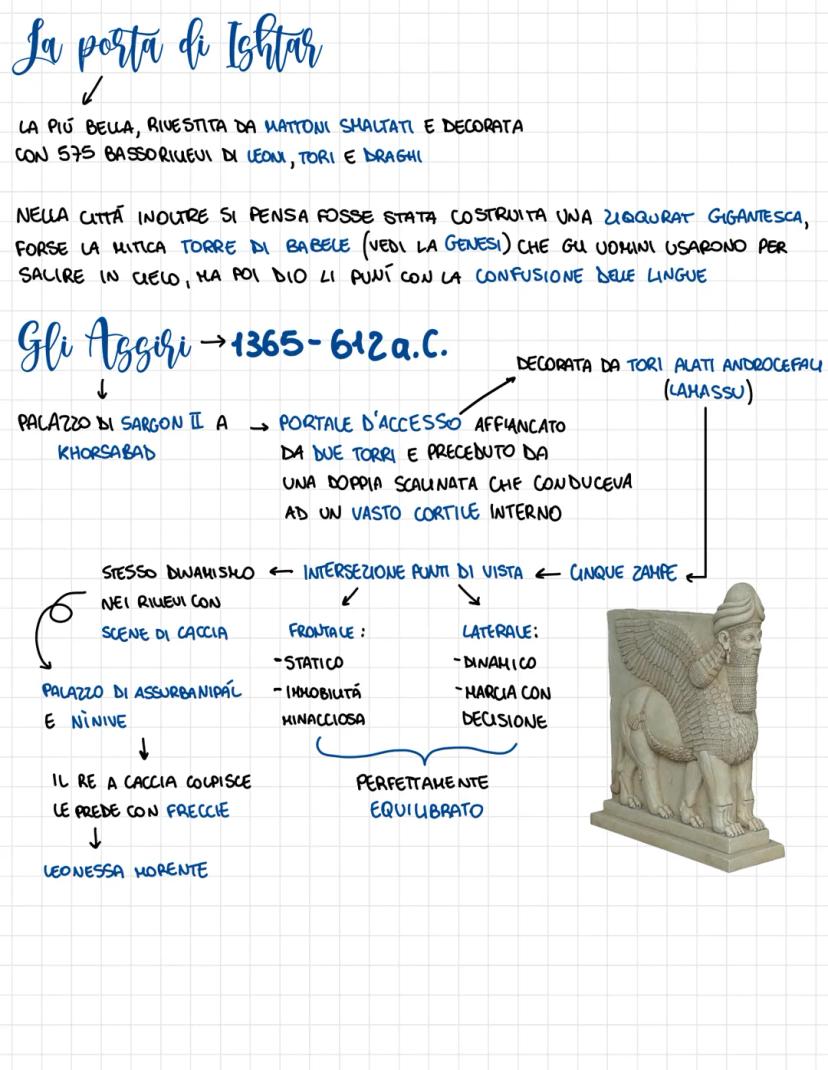 La porta di Ishtar
LA PIÚ BELLA, RIVESTITA DA MATTONI SMALTATI E DECORATA
CON 575 BASSORILIEVI DI LEONI, TORI E DRAGHI
NELLA CITTÁ INOLTRE SI PENSA FOSSE STATA COSTRUITA UNA ZIQQURAT GIGANTESCA,
FORSE LA MITICA TORRE DI BABELE (VEDI LA GENESI) CHE GLI UOMINI USARONO PER
SALIRE IN CIELO, MA POI DIO LI PUNÍ CON LA CONFUSIONE DELLE LINGUE
Gli Assiri → 1365-612 a.C.
DECORATA DA TORI ALATI ANDROCEFALI
(LAMASSU)
PALAZZO DI SARGON II A → PORTALE D'ACCESSO AFFIANCATO
KHORSABAD
DA DUE TORRI E PRECEDUTO DA
UNA DOPPIA SCALINATA CHE CONDUCEVA
AD UN VASTO CORTILE INTERNO
STESSO DINAMISMO ← INTERSEZIONE PUNTI DI VISTA ← CINQUE ZAMPE
NEI RILIEVI CON
SCENE DI CACCIA
FRONTALE:
-STATICO
-IMMOBILITÁ
MINACCIOSA
LATERALE:
-DINAMICO
-MARCIA CON
DECISIONE
PERFETTAMENTE
EQUILIBRATO
PALAZZO DI ASSURBANIPÁL
E NÌNIVE
IL RE A CACCIA COLPISCE
LE PREDE CON FRECCIE
LEONESSA MORENTE